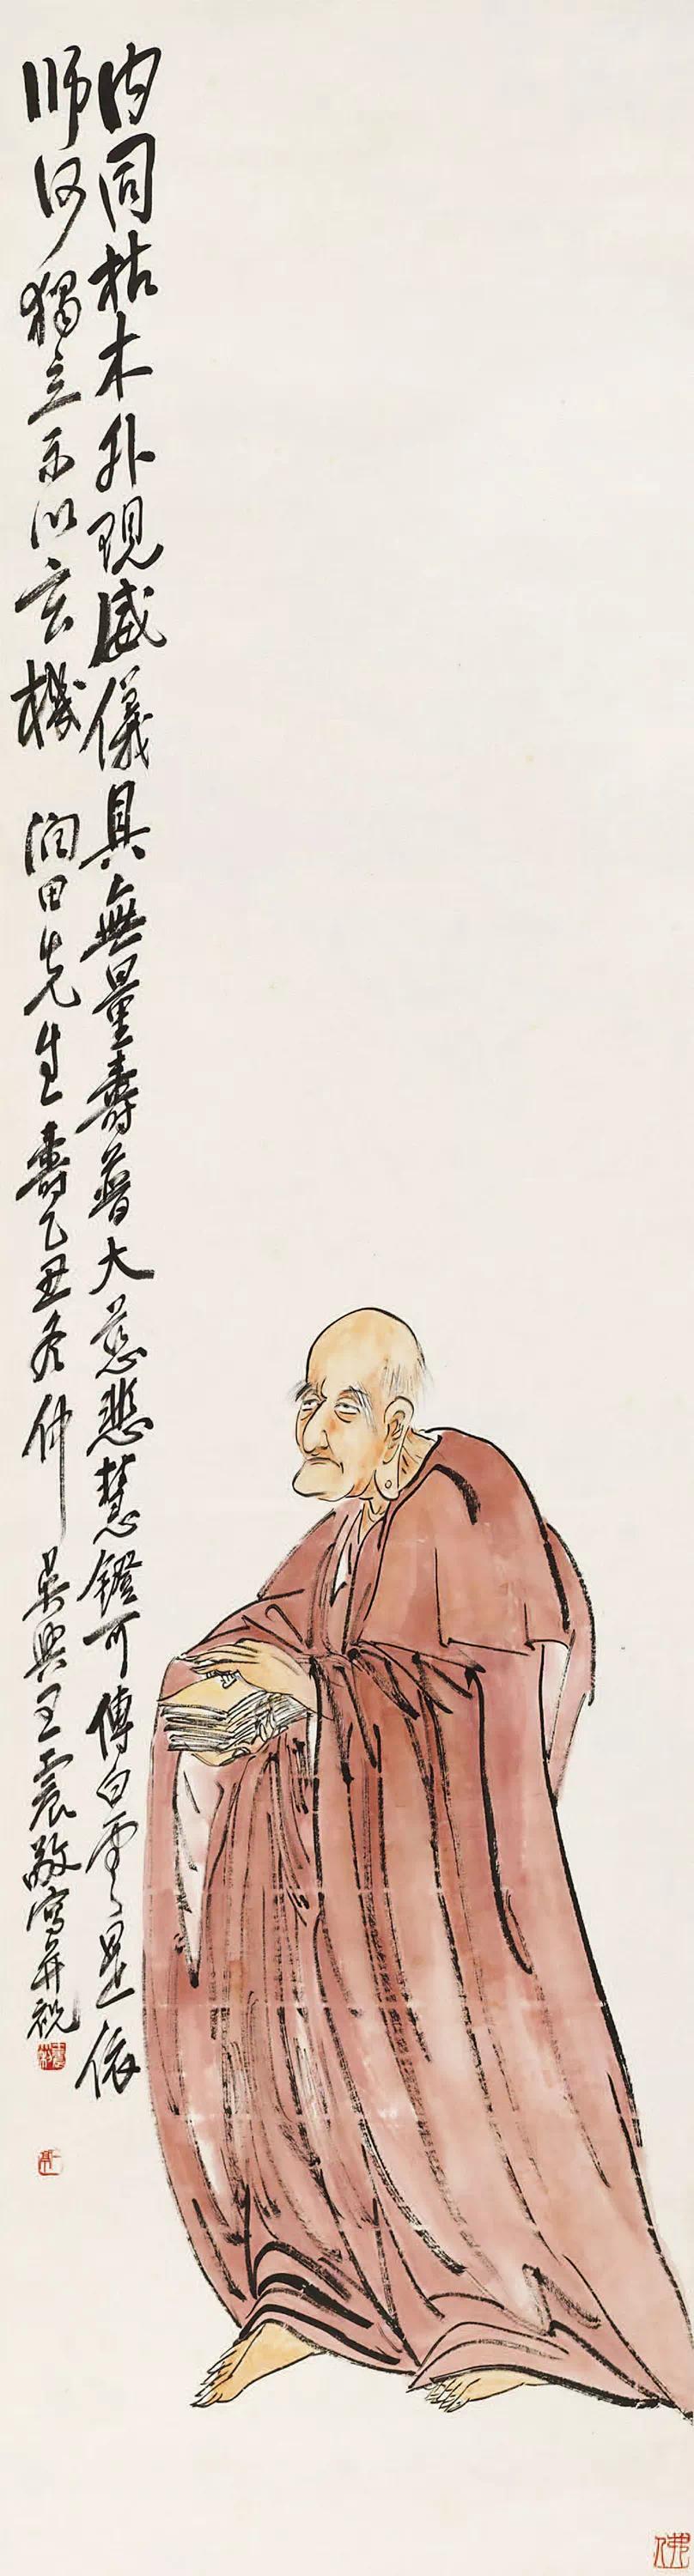 内同枯木外現威儀具無量壽普大慈悲慧鐙可傳白雲是依
師何獨立示以玄機 潤田先生壽乙丑冬仲 吳興王震敬寫并祝
佛